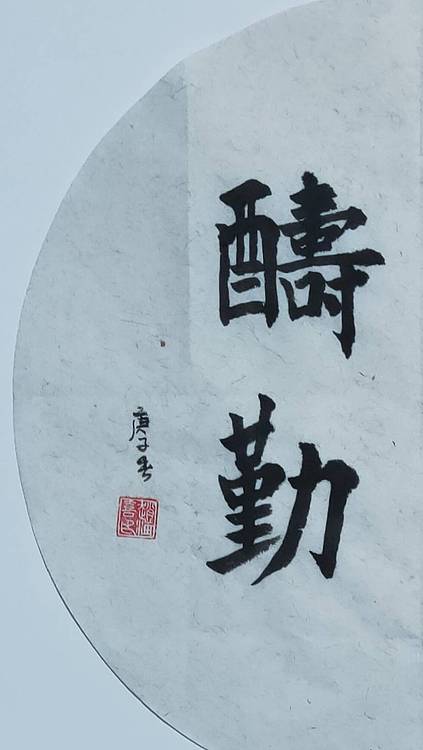 醻勤
庚子春